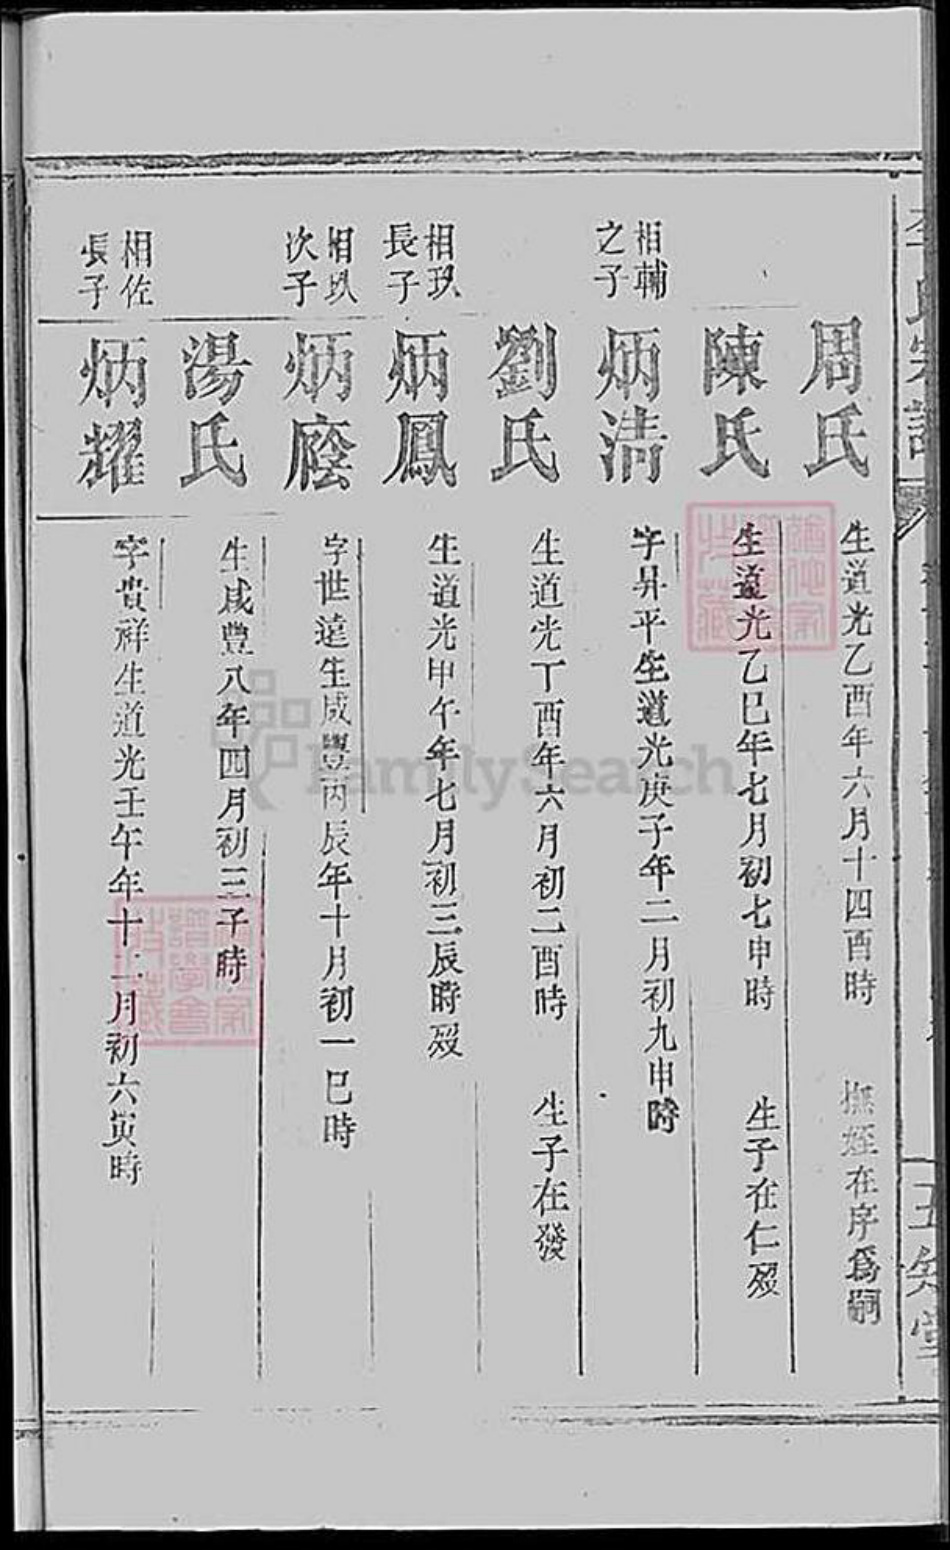 周氏
生道光乙酉年六月十四酉時 撫姪在序爲嗣
陳氏
生道光乙巳年七月初七申時 生子在仁歿
相輔
之子
炳清
字昇平生道光庚子年二月初九申時
劉氏
生道光丁酉年六月初二酉時 生子在發
相玖
長子
炳鳳
生道光甲午年七月初三辰時歿
相玖
次子
炳蔭
字世遠生咸豐丙辰年十月初一巳時
湯氏
生咸豐八年四月初三子時
相佐
長子
炳耀
字貴祥生道光壬午年十二月初六寅時
五知堂
FamilySearch